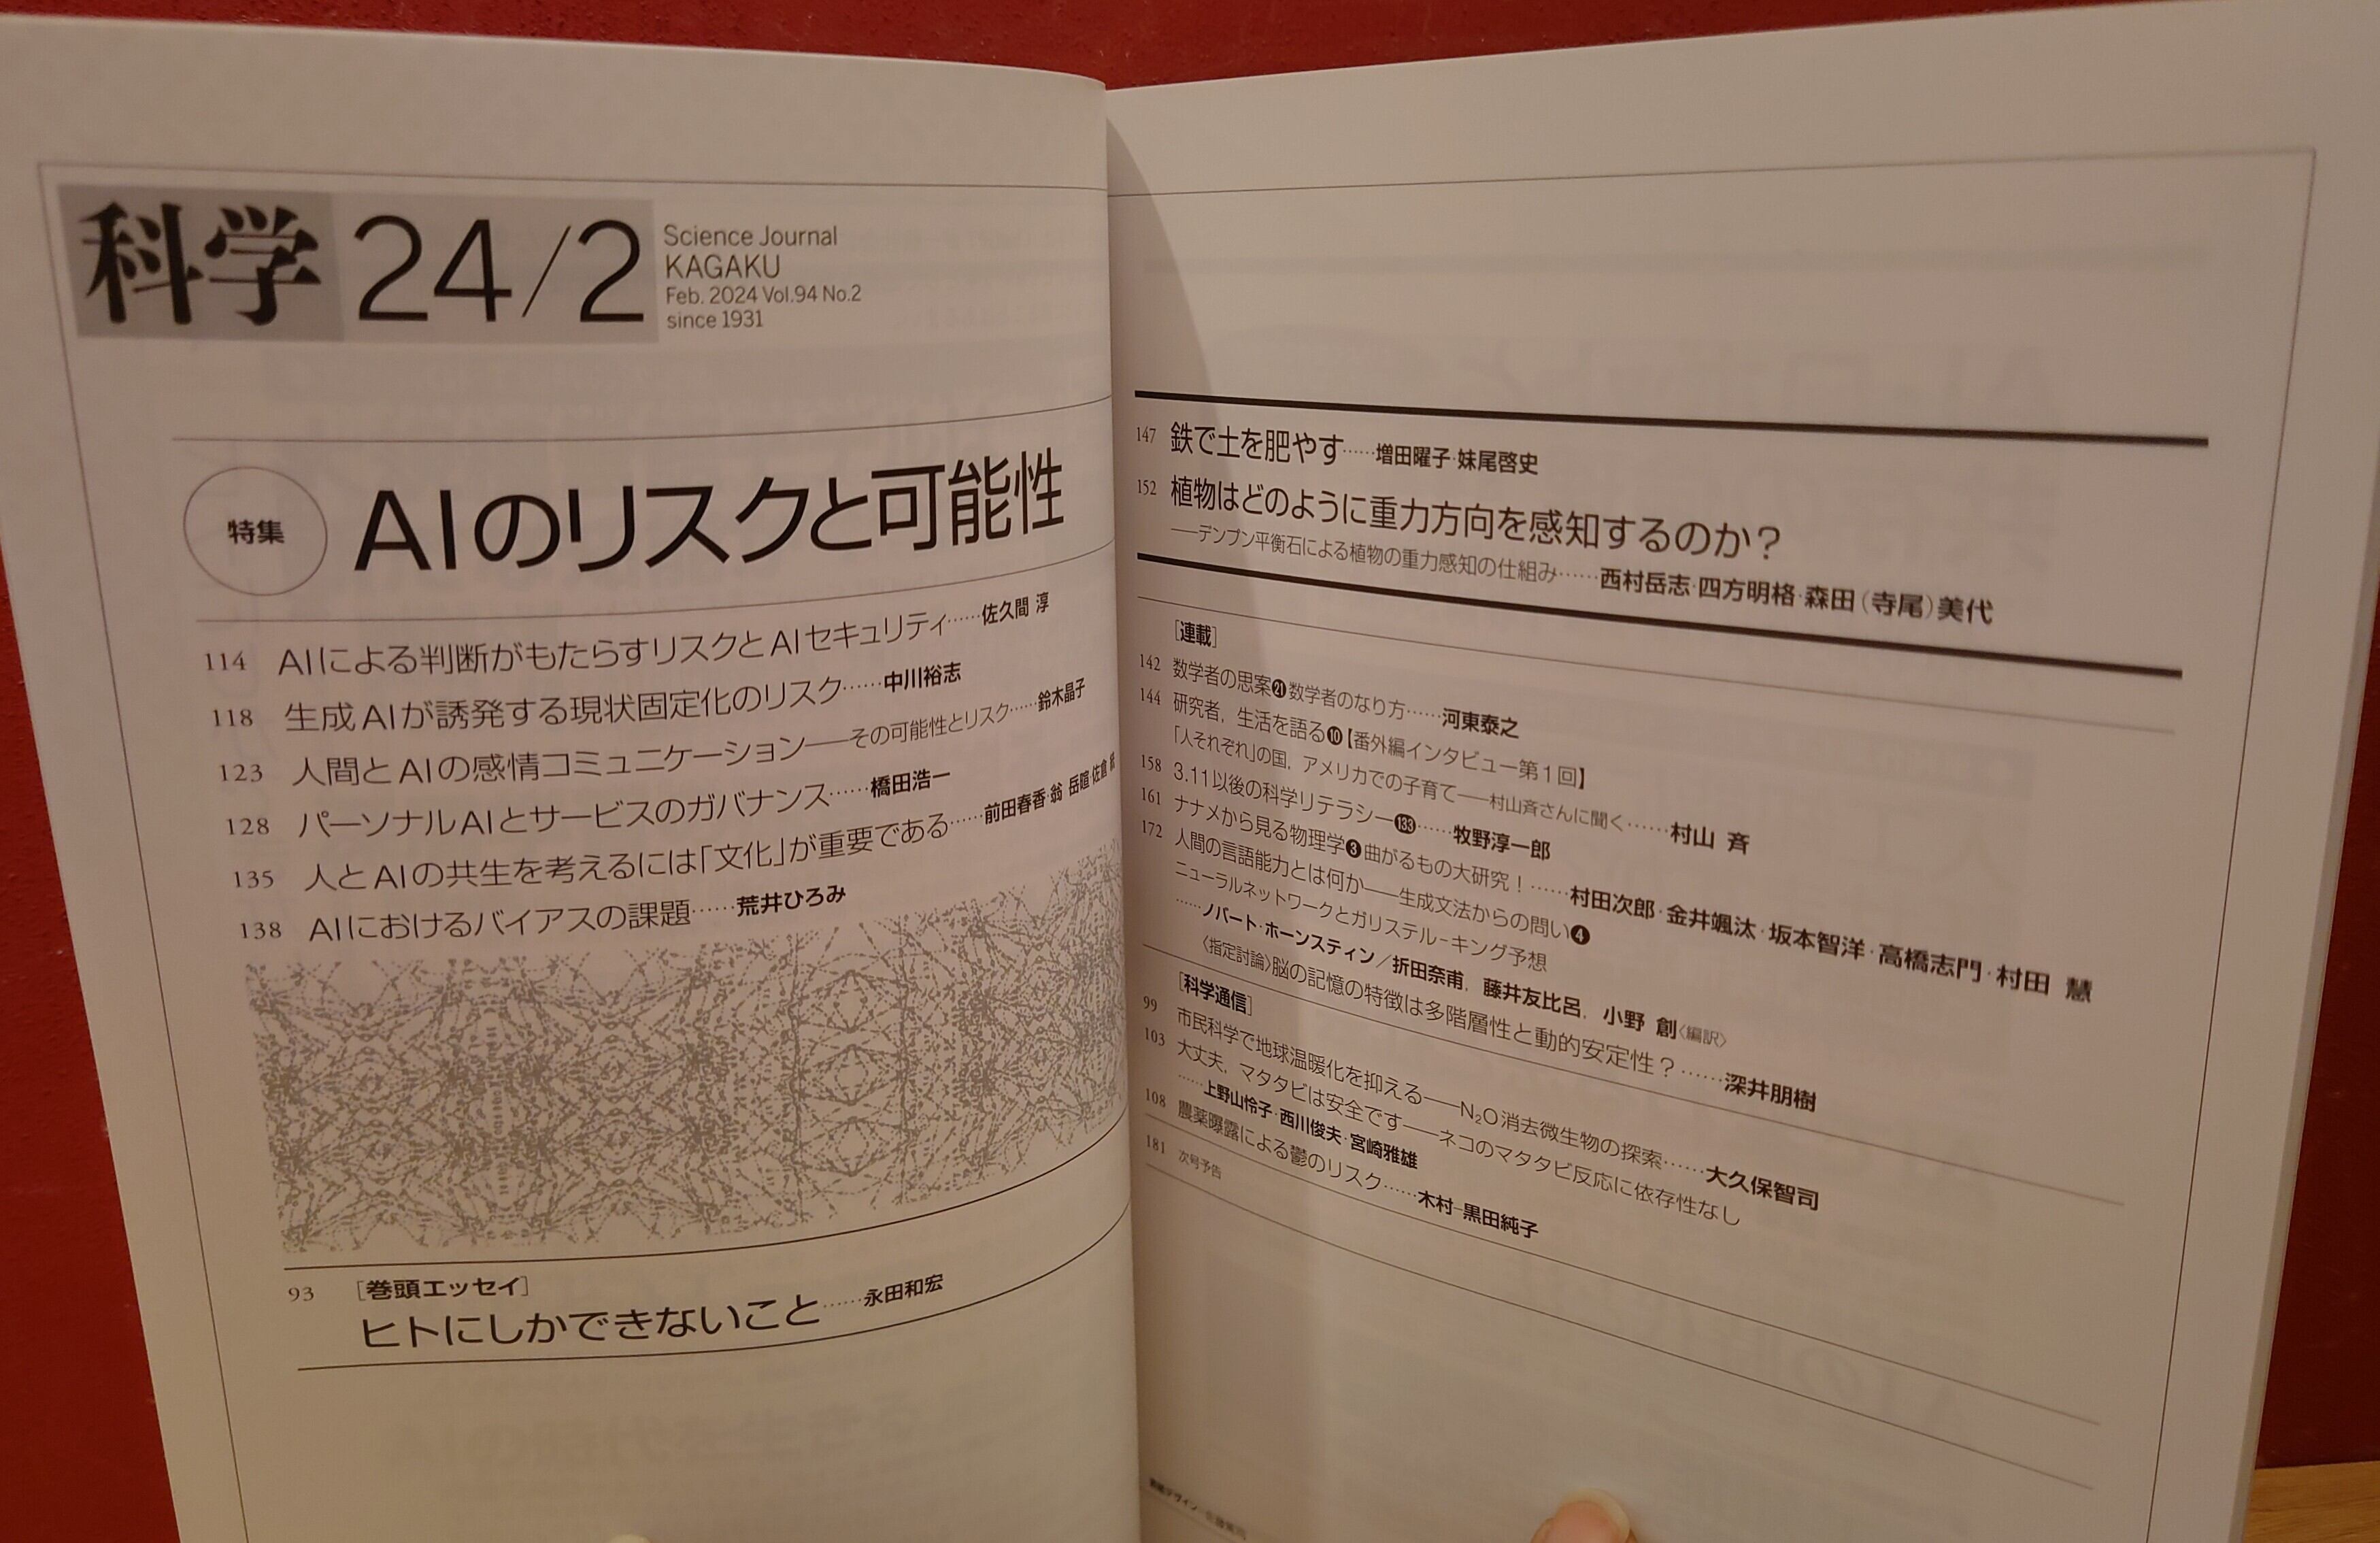 科学 24/2
Science Journal
KAGAKU
Feb. 2024 Vol.94 No.2
since 1931
特集
AIのリスクと可能性
114 AIによる判断がもたらすリスクとAIセキュリティ……佐久間 淳
118 生成AIが誘発する現状固定化のリスク……中川裕志
123 人間とAIの感情コミュニケーション──その可能性とリスク……鈴木晶子
128 パーソナルAIとサービスのガバナンス……橋田浩一
135 人とAIの共生を考えるには「文化」が重要である……前田春香·翁 岳暄·佐倉 統
138 AIにおけるバイアスの課題……荒井ひろみ
93 [巻頭エッセイ]
ヒトにしかできないこと……永田和宏
147 鉄で土を肥やす……増田曜子·妹尾啓史
152 植物はどのように重力方向を感知するのか？
──デンプン平衡石による植物の重力感知の仕組み……西村岳志·四方明格·森田（寺尾）美代
[連載]
142 数学者の思案㉑数学者のなり方……河東泰之
144 研究者，生活を語る❿【番外編インタビュー第1回】
「人それぞれ」の国，アメリカでの子育て──村山斉さんに聞く……村山 斉
158 3.11以後の科学リテラシー133……牧野淳一郎
161 ナナメから見る物理学❸曲がるもの大研究！……村田次郎·金井颯汰·坂本智洋·高橋志門·村田 慧
172 人間の言語能力とは何か──生成文法からの問い❹
ニューラルネットワークとガリステル-キング予想
……ノバート·ホーンスティン／折田奈甫，藤井友比呂，小野 創〈編訳〉
〈指定討論〉脳の記憶の特徴は多階層性と動的安定性？……深井朋樹
[科学通信]
99 市民科学で地球温暖化を抑える──N₂O消去微生物の探索……大久保智司
103 大丈夫，マタタビは安全です──ネコのマタタビ反応に依存性なし
……上野山怜子·西川俊夫·宮崎雅雄
108 農薬曝露による鬱のリスク……木村-黒田純子
181 次号予告